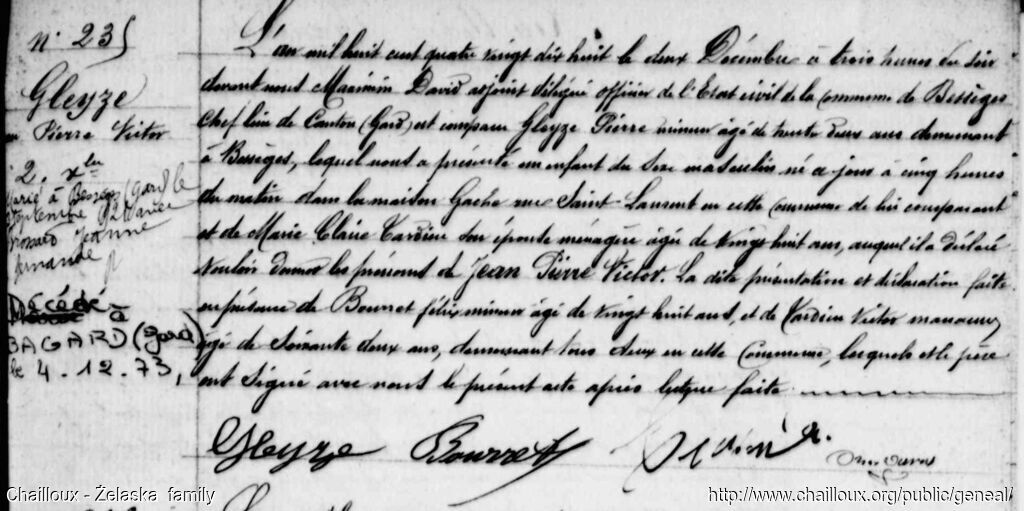 n° 235
Gleyze
Pierre Victor
2. xbre
Marié à Bessèges (Gard) le
Septembre
Jeanne
Décédé
à
BAGARD (Gard)
le 4.12.73
L'an mil huit cent quatre vingt dix huit le deux Décembre à trois heures du soir
devant nous Maximin David adjoint délégué officier de l'Etat civil de la commune de Bessèges
chef lieu de Canton (Gard) est comparu Gleyze Pierre mineur âgé de trente deux ans demeurant
à Bessèges, lequel nous a présenté un enfant du sexe masculin né ce jour à cinq heures
du matin dans la maison Gache rue Saint-Laurent en cette Commune de lui comparant
et de Marie Claire Tardieu son épouse ménagère âgée de vingt huit ans, auquel il a déclaré
vouloir donner les prénoms de Jean Pierre Victor. La dite présentation et déclaration faite
en présence de Bourret félix mineur âgé de vingt huit ans, et de Tardieu Victor manœuvre
âgé de Soixante deux ans, demeurant tous deux en cette Commune, lesquels et le père
ont signé avec nous le présent acte après lecture faite
Gleyze Bourret
Chailloux - Želaska family
http://www.chailloux.org/public/geneal/